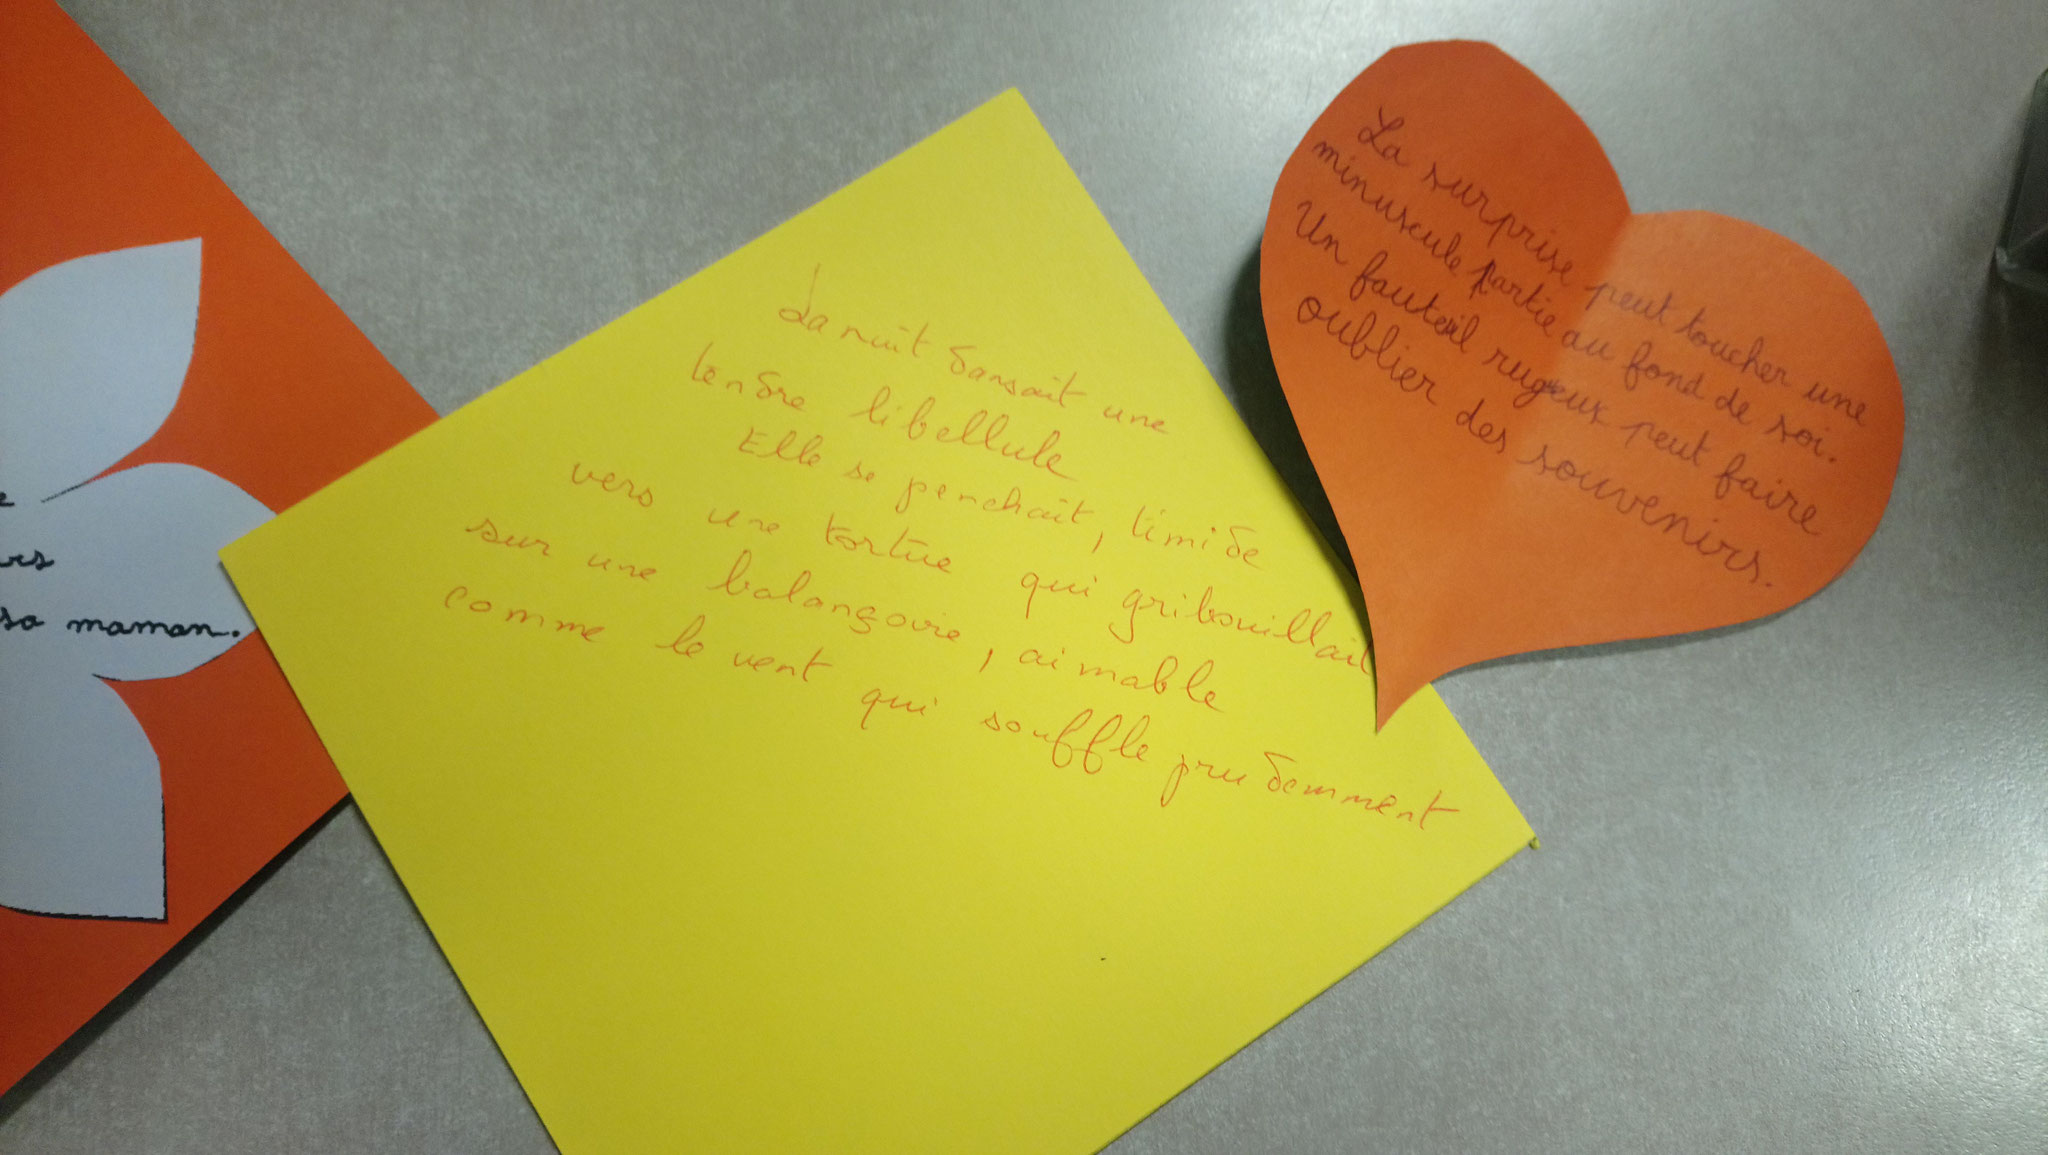 sa maman.
La nuit dansait une
tendre libellule
Elle se penchait, timide
vers une tortue qui gribouillait
sur une balançoire, aimable
comme le vent qui souffle prudemment
La surprise peut toucher une
minuscule partie au fond de soi.
Un fauteuil rugueux peut faire
oublier des souvenirs.